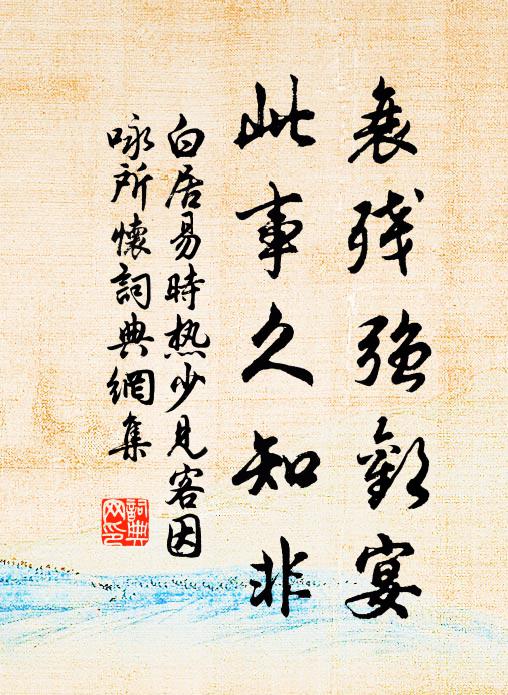 衰残強歡宴
此事久知非
白居易時热少見客因
咏所懷詞典網集
詞典
网印